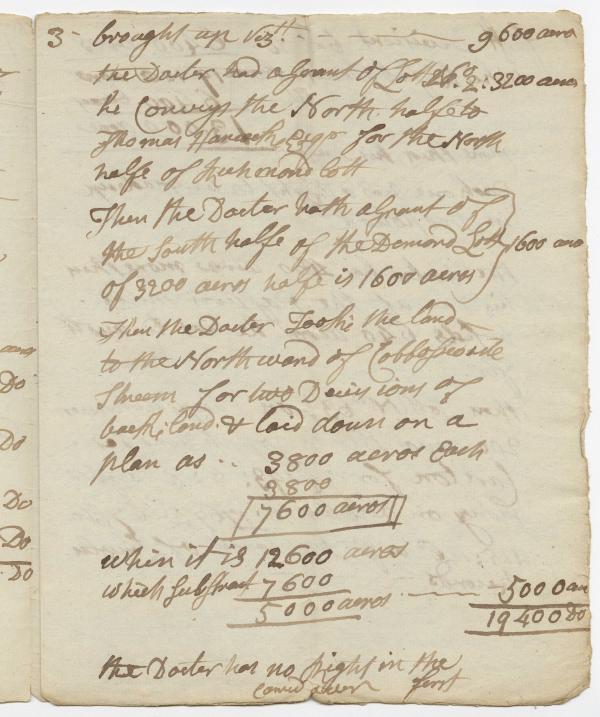 3 - brought up Viz.tt - 9600 acres
the Docter had a Grant of Lott No. 2: 3200 acres
he Conveys the North halfe to
Thomas Hancock Esqr for the North
halfe of Richmond Lott
Then the Docter hath a Grant of
the South halfe of the Demond Lott 1600 acres
of 3200 acros halfe is 1600 acros
Then the Docter Tooke the land
to the Northward of Cobboseconte
Streem for two Devisions of
back land & laid down on a
plan as .. 3800 acros Each
3800
7600 acros
when it is 12600 acros
which Substract 7600
5000 acros - 5000 acr
19400 Do
the Docter has no Right in the
carried over first
acros
Do
Do
Do
Do
Do